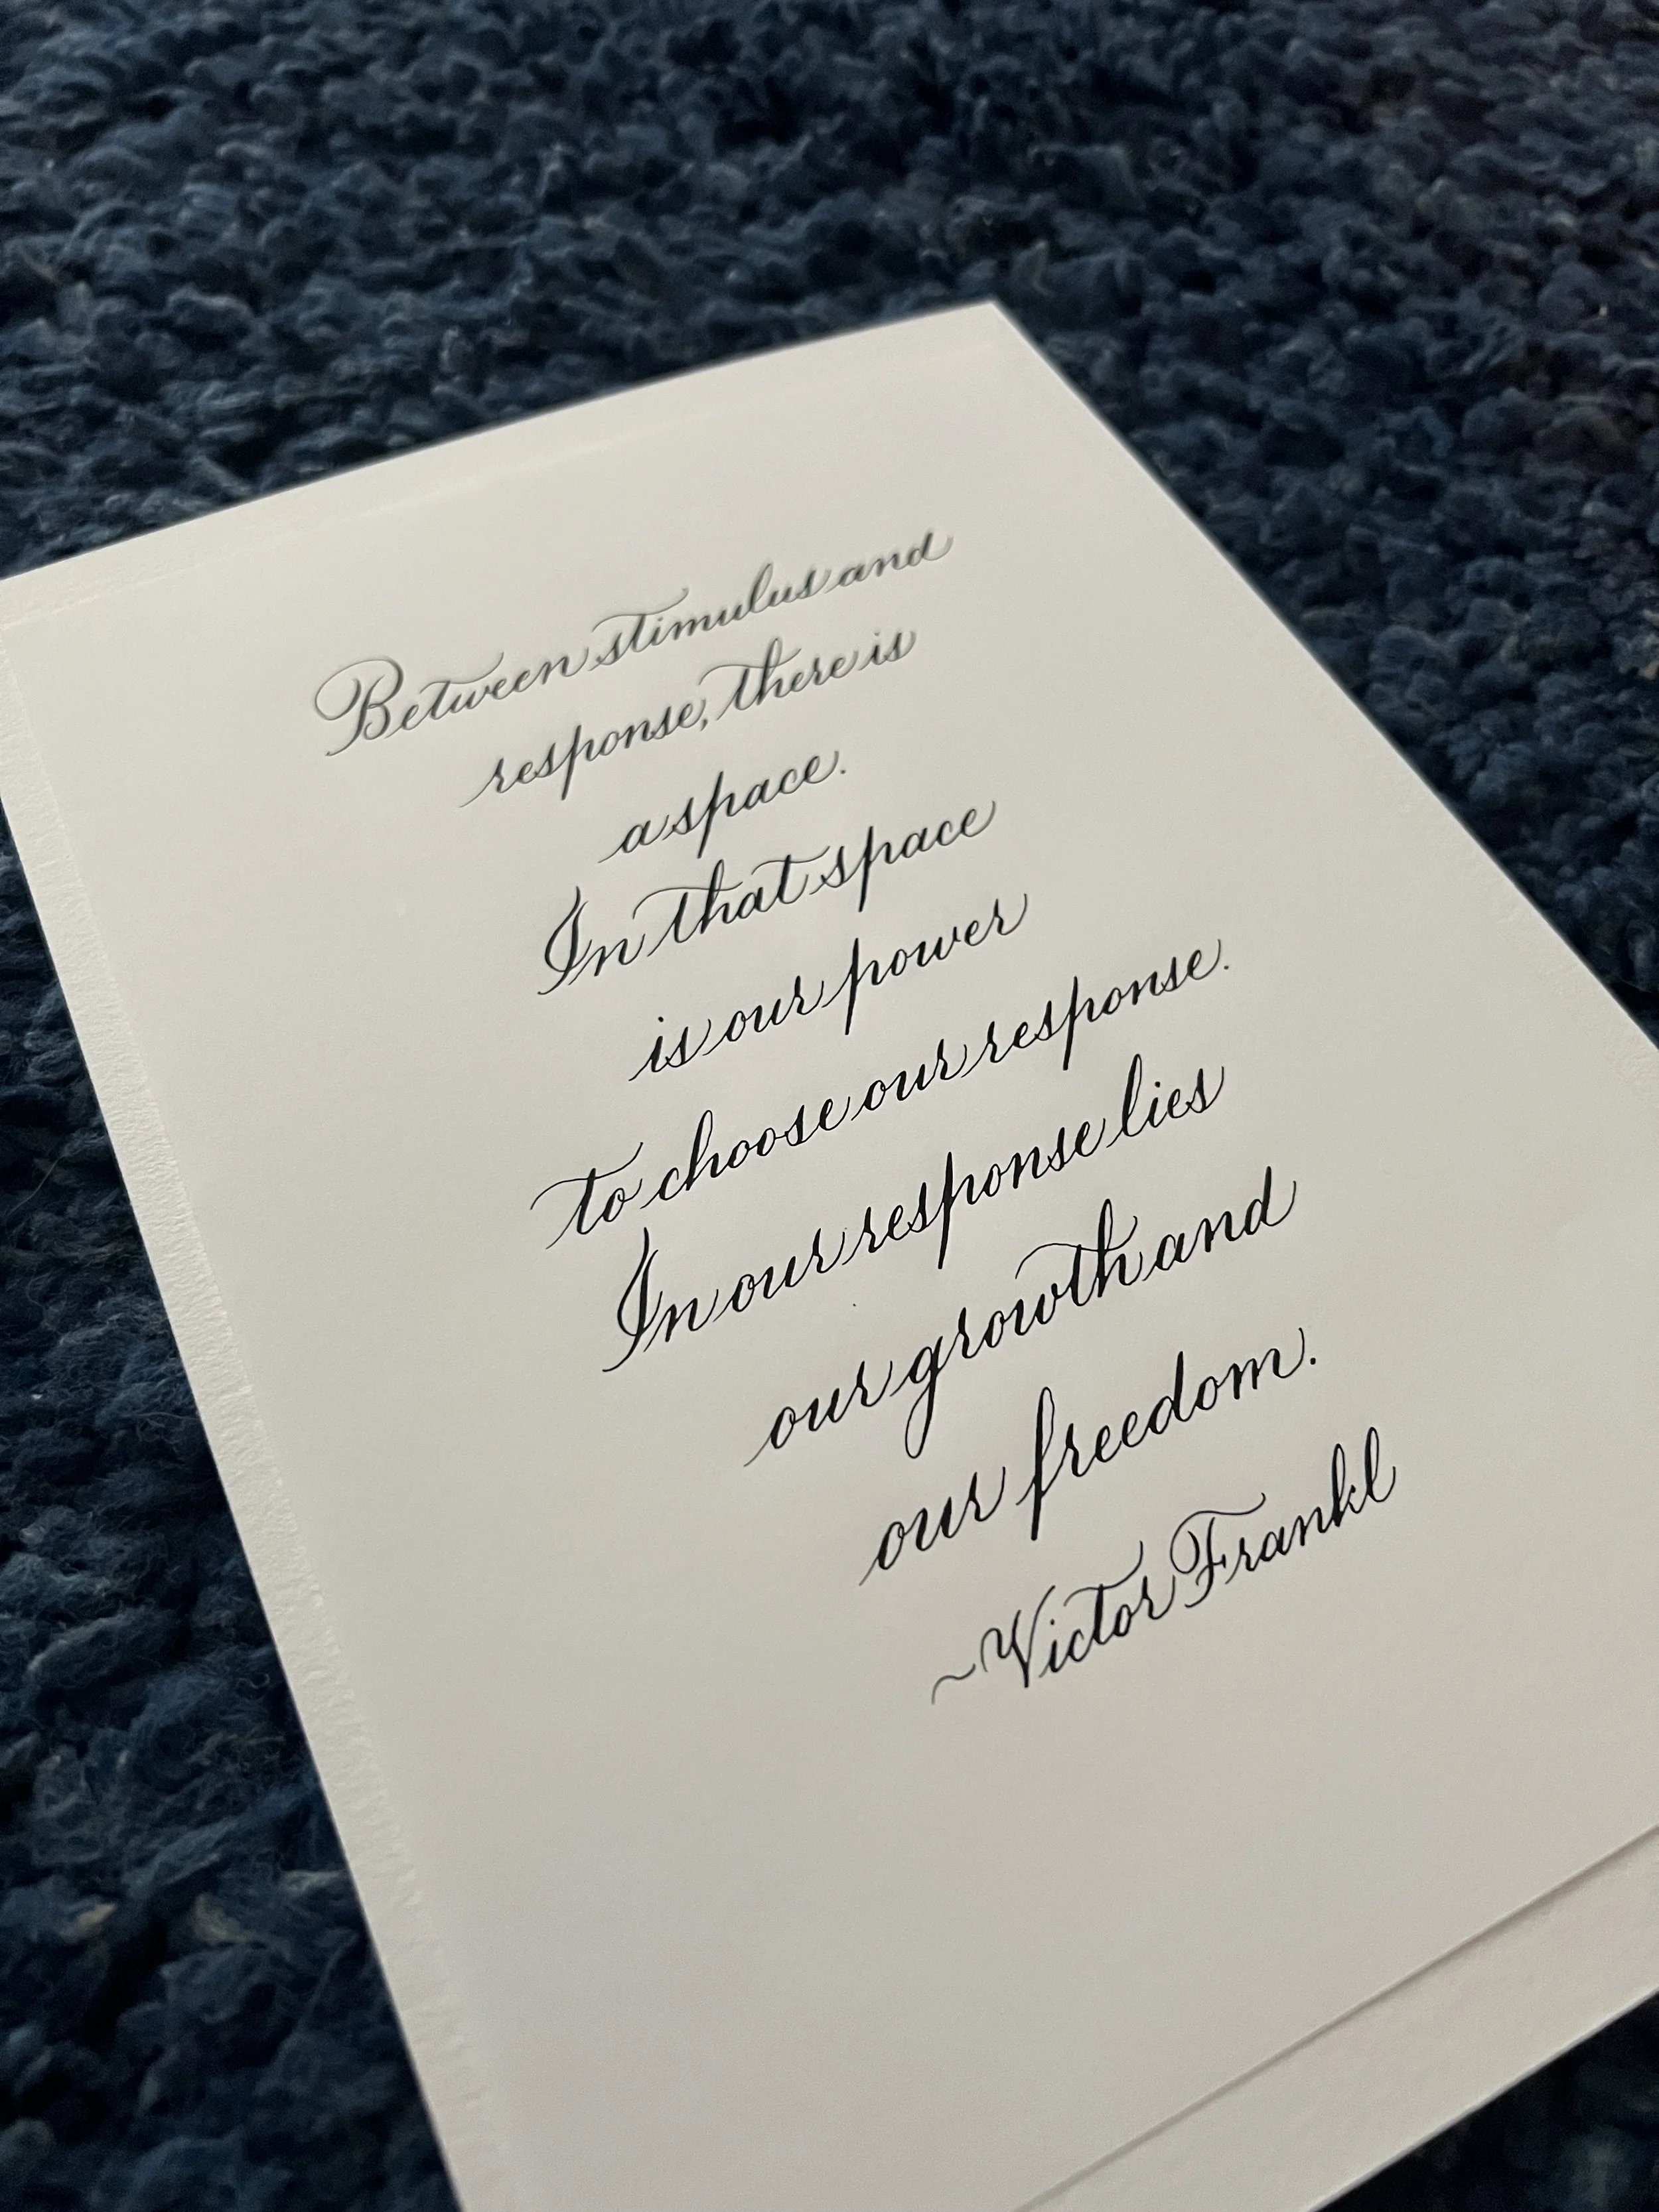 Between stimulus and
response, there is
a space.
In that space
is our power
to choose our response.
In our response lies
our growth and
our freedom.
~Victor Frankl